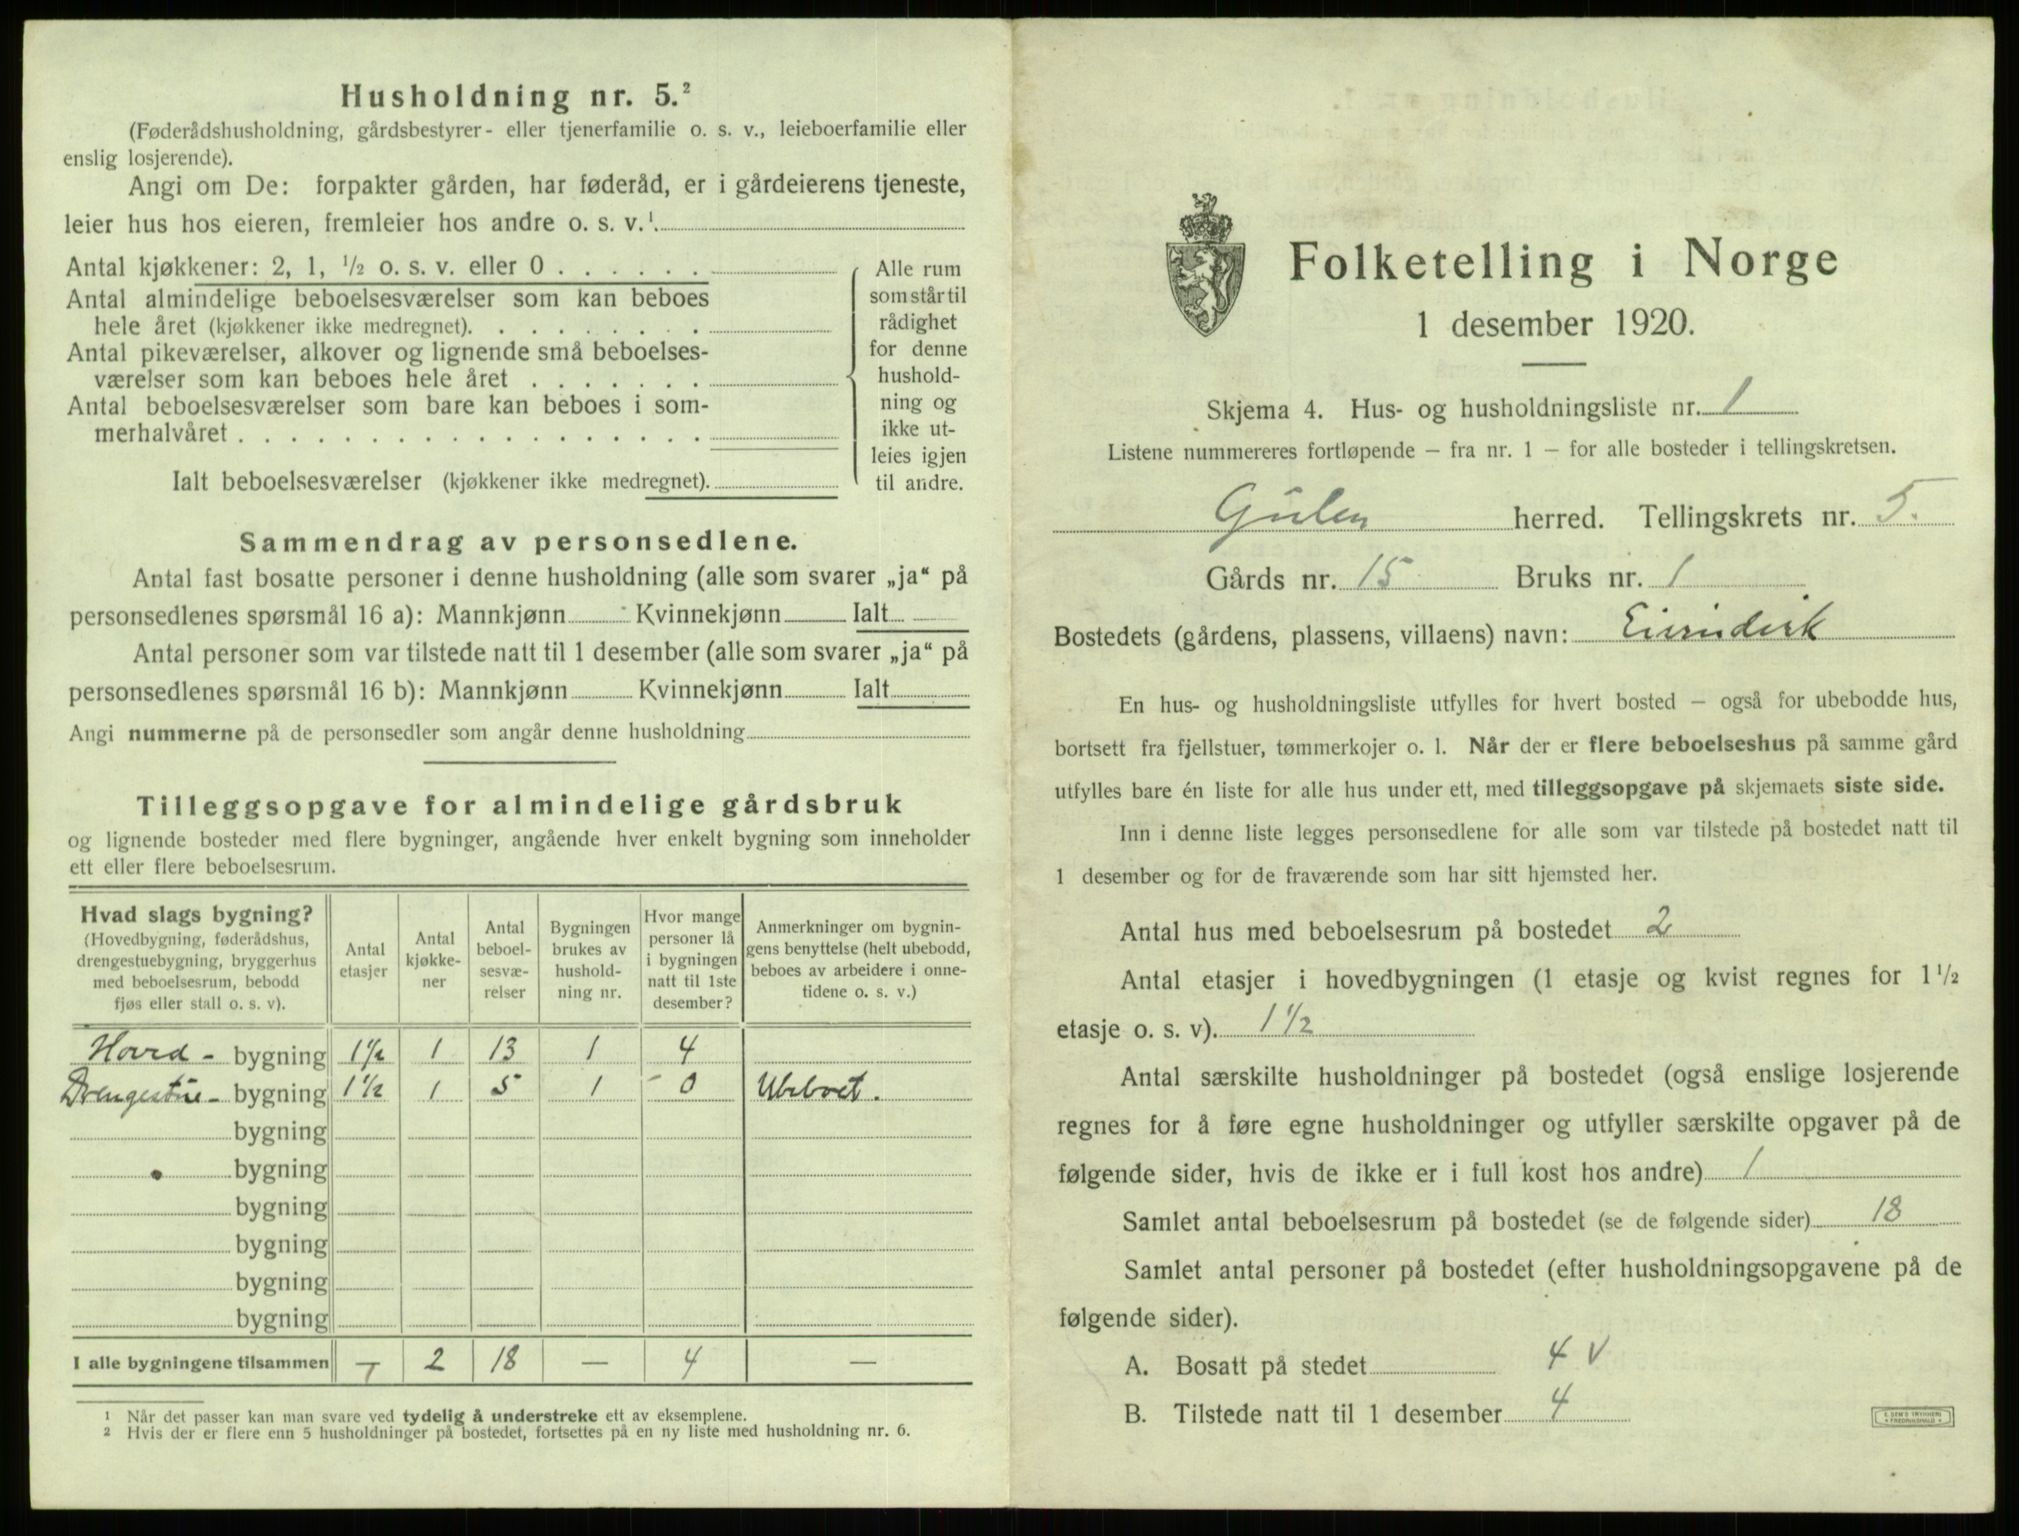 Husholdning nr. 5.²
(Føderådshusholdning, gårdsbestyrer- eller tjenerfamilie o. s. v., leieboerfamilie eller
enslig losjerende).
Angi om De: forpakter gården, har føderåd, er i gårdeierens tjeneste,
leier hus hos eieren, fremleier hos andre o. s. v.¹
Antal kjøkkener: 2, 1, ½ o. s. v. eller 0 . . . . . .
Antal almindelige beboelsesværelser som kan beboes
hele året (kjøkkener ikke medregnet). . . . . . . . .
Antal pikeværelser, alkover og lignende små beboelses-
værelser som kan beboes hele året . . . . . . .
Antal beboelsesværelser som bare kan beboes i som-
merhalvåret . . . . . . . . . . . . . . . . . .
Ialt beboelsesværelser (kjøkkener ikke medregnet).
Alle rum
som står til
rådighet
for denne
hushold-
ning og
ikke ut-
leies igjen
til andre.
Sammendrag av personsedlene.
Antal fast bosatte personer i denne husholdning (alle som svarer „ja“ på
personsedlenes spørsmål 16 a): Mannkjønn Kvinnekjønn Ialt
Antal personer som var tilstede natt til 1 desember (alle som svarer „ja“ på
personsedlenes spørsmål 16 b): Mannkjønn Kvinnekjønn Ialt
Angi nummerne på de personsedler som angår denne husholdning
Tilleggsopgave for almindelige gårdsbruk
og lignende bosteder med flere bygninger, angående hver enkelt bygning som inneholder
ett eller flere beboelsesrum.
Hvad slags bygning?
(Hovedbygning, føderådshus,
drengestuebygning, bryggerhus
med beboelsesrum, bebodd
fjøs eller stall o. s. v).
Antal
etasjer
Antal
kjøkke-
ner
Antal
beboel-
sesvæ-
relser
Bygningen
brukes av
hushold-
ning nr.
Hvor mange
personer lå
i bygningen
natt til 1ste
desember?
Anmerkninger om bygnin-
gens benyttelse (helt ubebodd,
beboes av arbeidere i onne-
tidene o. s. v.)
Hoved- bygning 1½ 1 13 1 4
Drengestue- bygning 1½ 1 5 1 - 0 Ubeboet.
bygning
bygning
bygning
bygning
bygning
bygning
I alle bygningene tilsammen — 2 18 — 4 —
1 Når det passer kan man svare ved tydelig å understreke ett av eksemplene.
2 Hvis der er flere enn 5 husholdninger på bostedet, fortsettes på en ny liste med husholdning nr. 6.
Folketelling i Norge
1 desember 1920.
Skjema 4. Hus- og husholdningsliste nr. 1
Listene nummereres fortløpende – fra nr. 1 – for alle bosteder i tellingskretsen.
Gulen herred. Tellingskrets nr. 5.
Gårds nr. 15 Bruks nr. 1
Bostedets (gårdens, plassens, villaens) navn: Eivindvik
En hus- og husholdningsliste utfylles for hvert bosted – også for ubebodde hus,
bortsett fra fjellstuer, tømmerkojer o. l. Når der er flere beboelseshus på samme gård
utfylles bare én liste for alle hus under ett, med tilleggsopgave på skjemaets siste side.
Inn i denne liste legges personsedlene for alle som var tilstede på bostedet natt til
1 desember og for de fraværende som har sitt hjemsted her.
Antal hus med beboelsesrum på bostedet 2
Antal etasjer i hovedbygningen (1 etasje og kvist regnes for 1½
etasje o. s. v). 1½
Antal særskilte husholdninger på bostedet (også enslige losjerende
regnes for å føre egne husholdninger og utfyller særskilte opgaver på de
følgende sider, hvis de ikke er i full kost hos andre) 1
Samlet antal beboelsesrum på bostedet (se de følgende sider) 18
Samlet antal personer på bostedet (efter husholdningsopgavene på de
følgende sider).
A. Bosatt på stedet 4 v
B. Tilstede natt til 1 desember 4